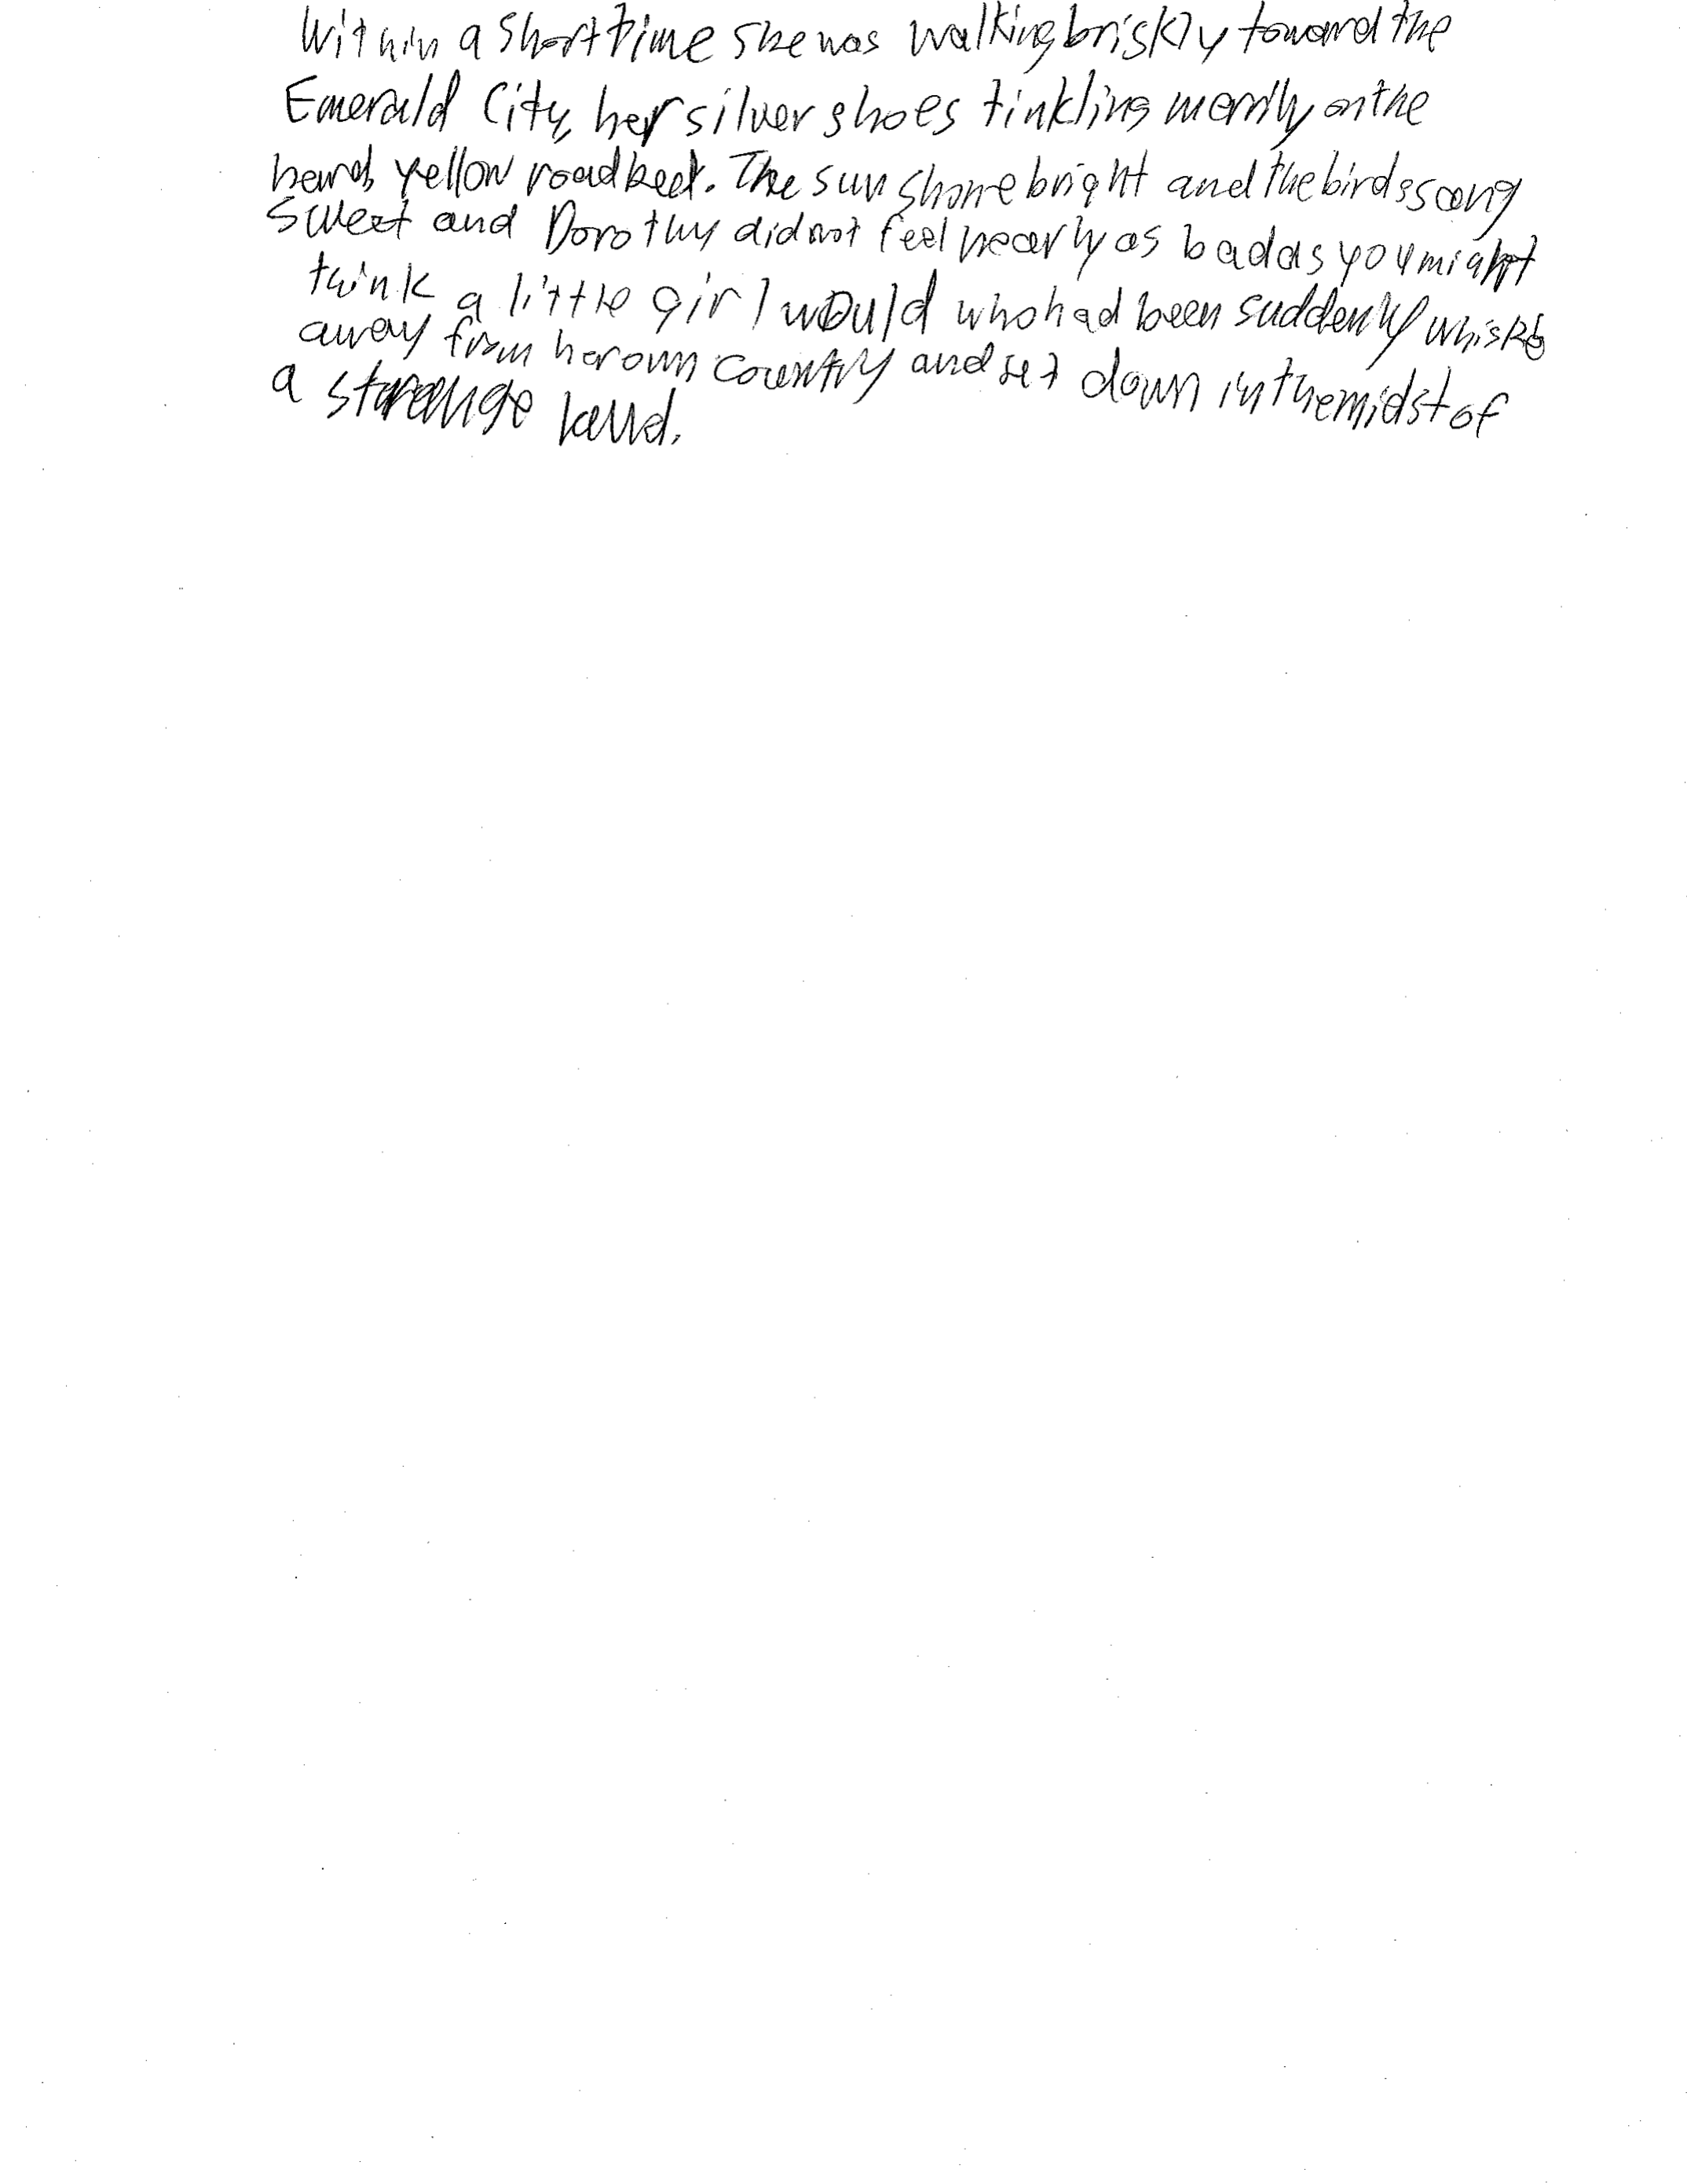 Within a short time she was walking briskly toward the
Emerald City, her silver shoes tinkling merrily on the
hard, yellow roadbed. The sun shone bright and the birds sang
sweet and Dorothy did not feel nearly as bad as you might
think a little girl would who had been suddenly whisked
away from her own country and set down in the midst of
a strange land.